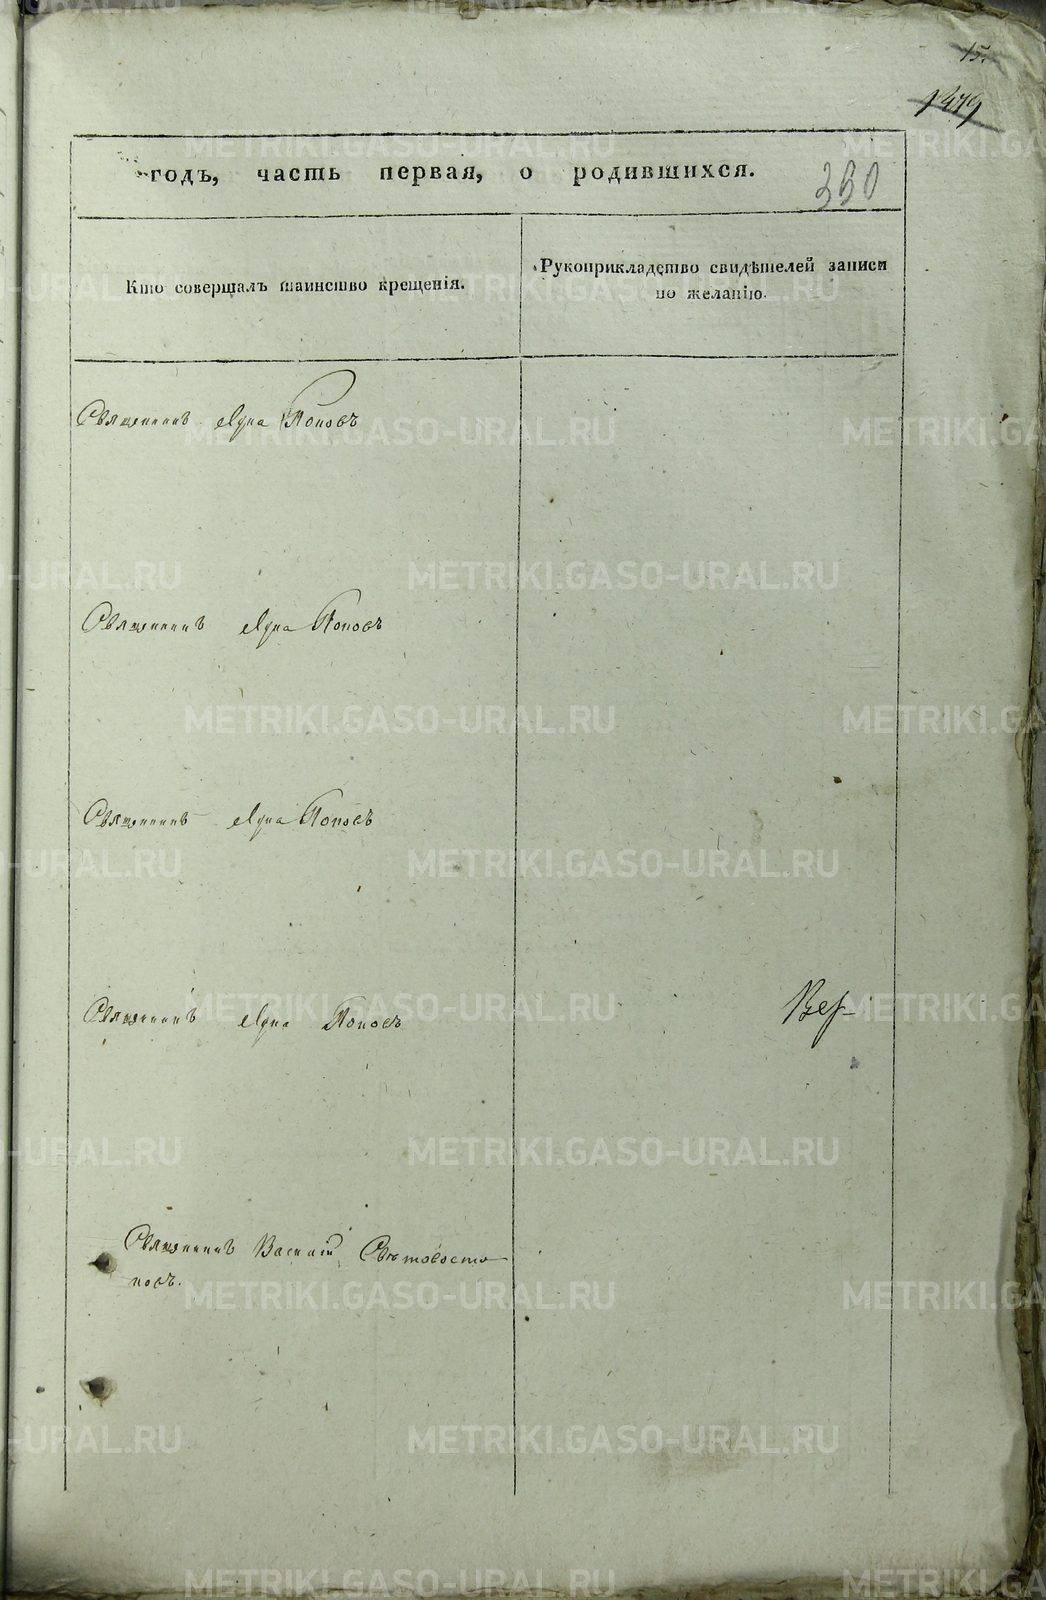 15.
1479
годъ, часть первая, о родившихся.
350
Кто совершалъ таинство крещенія.
Рукоприкладство свидѣтелей записи
по желанію.
Священникъ Поповъ
Священникъ Поповъ
Священникъ Поповъ
Священникъ Поповъ
Вер-
Священникъ Василій Свѣтовосто
ковъ.
METRIKI.GASO-URAL.RU